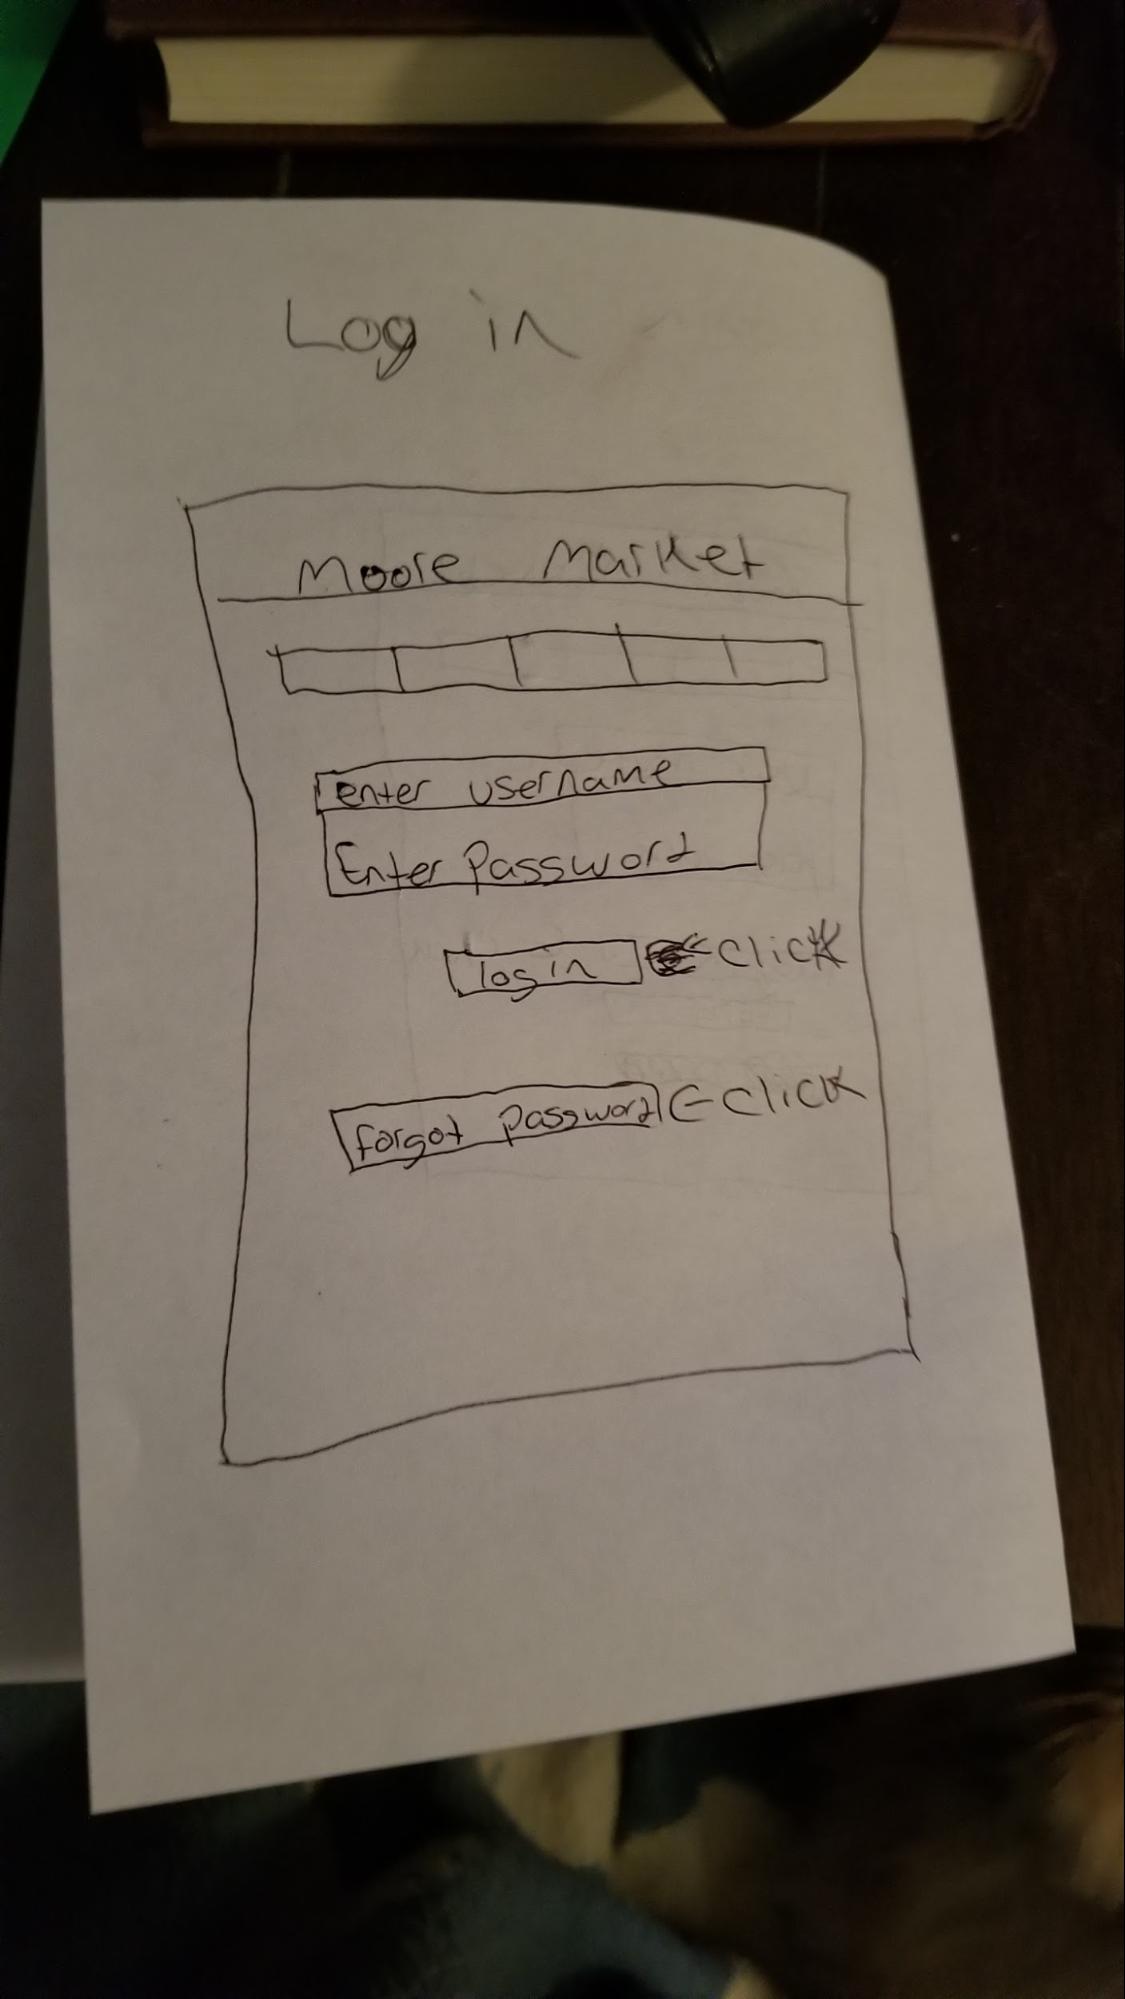 Log in
Moore Market
enter username
Enter Password
log in ← click
forgot password ← click